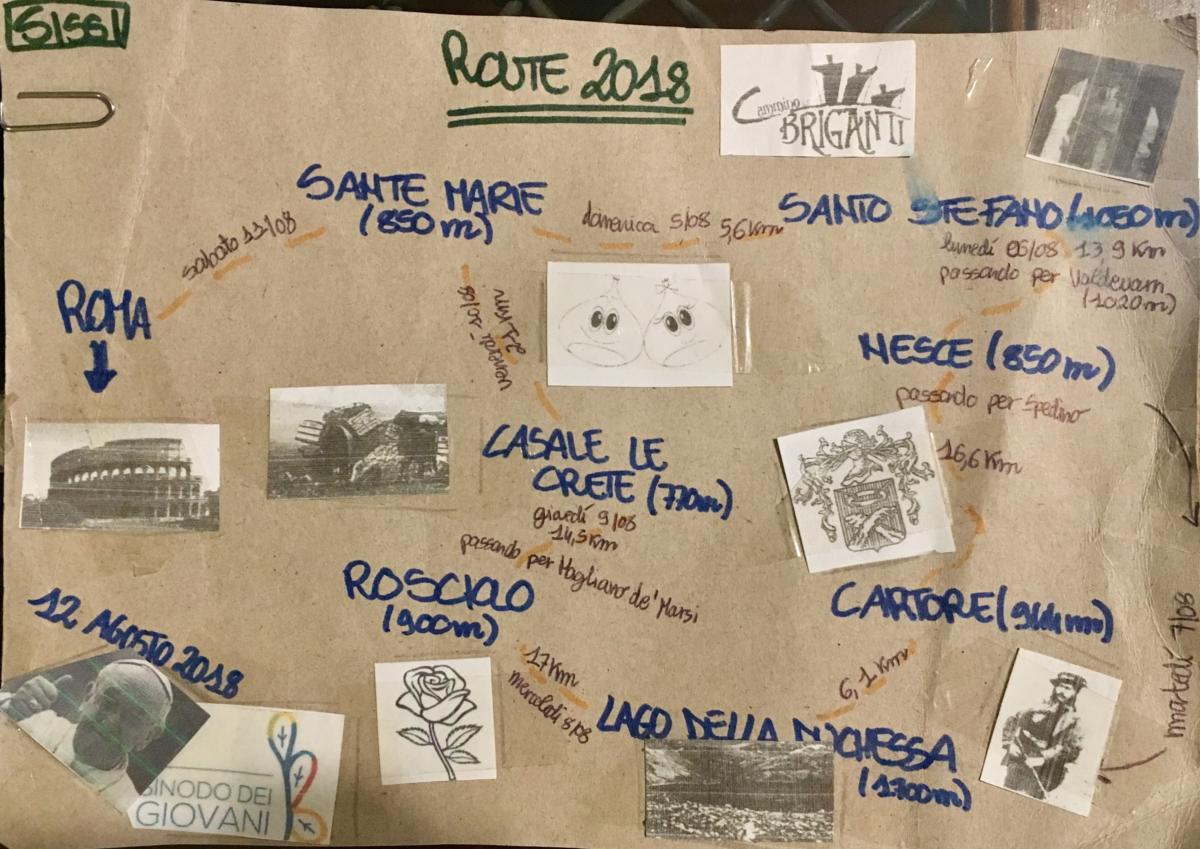 SISSI
ROUTE 2018
Cammino
BRIGANTI
SANTE MARIE
(850m)
domenica 5/08 5,6Km
SANTO STEFANO (1050m)
lunedí 06/08 13,9 Km
passando per
(1020m)
sabato 11/08
ROMA
venerdì 10/08
21 Km
NESCE (850m)
passando per Spedino
16,6 Km
CASALE LE
CRETE (770m)
giovedí 9/08
14,5Km
passando per Magliano de' Marsi
ROSCIOLO
(900m)
CARTORE (944m)
martedí 7/08
12 AGOSTO 2018
17Km
mercoledì 8/08
6,1 Km
LAGO DELLA DUCHESSA
(1700m)
SINODO DEI
GIOVANI